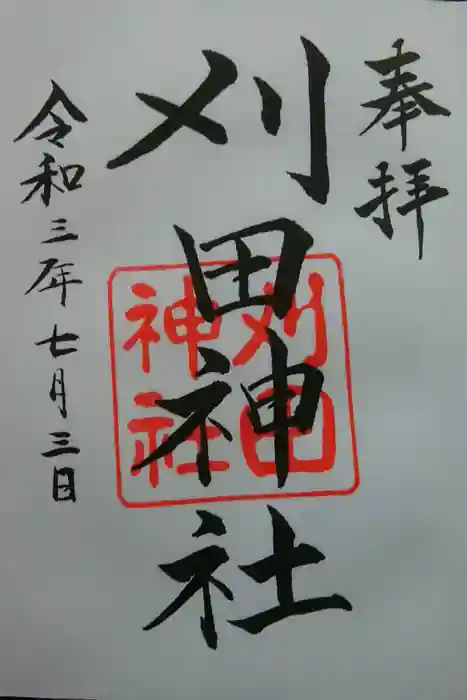 奉拝
刈田神社
刈田
神社
令和三年七月三日